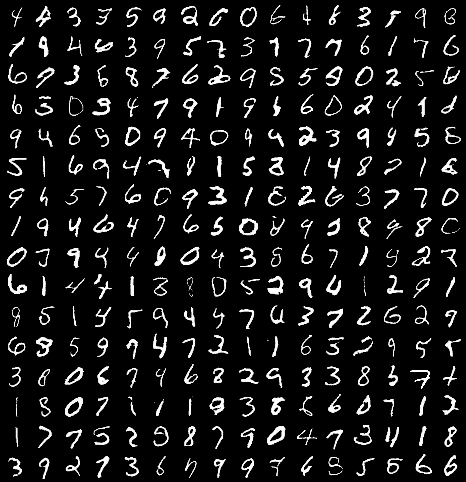 4 4 3 3 5 9 2 6 0 6 1 6 3 5 9 8
7 9 4 6 3 9 5 7 3 1 7 7 6 1 7 6
6 7 3 5 8 7 6 2 9 8 5 8 0 2 5 8
6 3 0 3 4 7 9 1 9 8 6 0 2 4 1 8
9 4 6 9 0 9 4 0 9 9 2 3 9 9 5 8
5 1 6 9 4 7 8 1 5 8 1 4 8 2 1 8
9 4 5 7 6 0 9 3 1 8 2 6 3 7 7 0
1 9 4 6 4 7 6 5 0 8 9 2 8 9 8 0
0 3 9 4 4 9 0 4 3 8 6 7 1 9 2 7
6 1 4 4 1 8 8 0 5 2 9 4 1 2 9 1
8 5 1 4 5 9 4 4 7 4 3 7 2 6 2 9
6 8 5 9 9 4 7 2 1 1 6 3 2 9 5 5
3 8 0 6 7 4 6 8 2 9 3 3 8 5 7 7
1 8 0 7 1 1 1 9 3 8 6 6 0 7 1 2
1 7 7 5 2 8 8 7 9 0 4 7 3 4 1 8
3 9 2 7 3 6 9 9 7 6 8 5 6 6 6